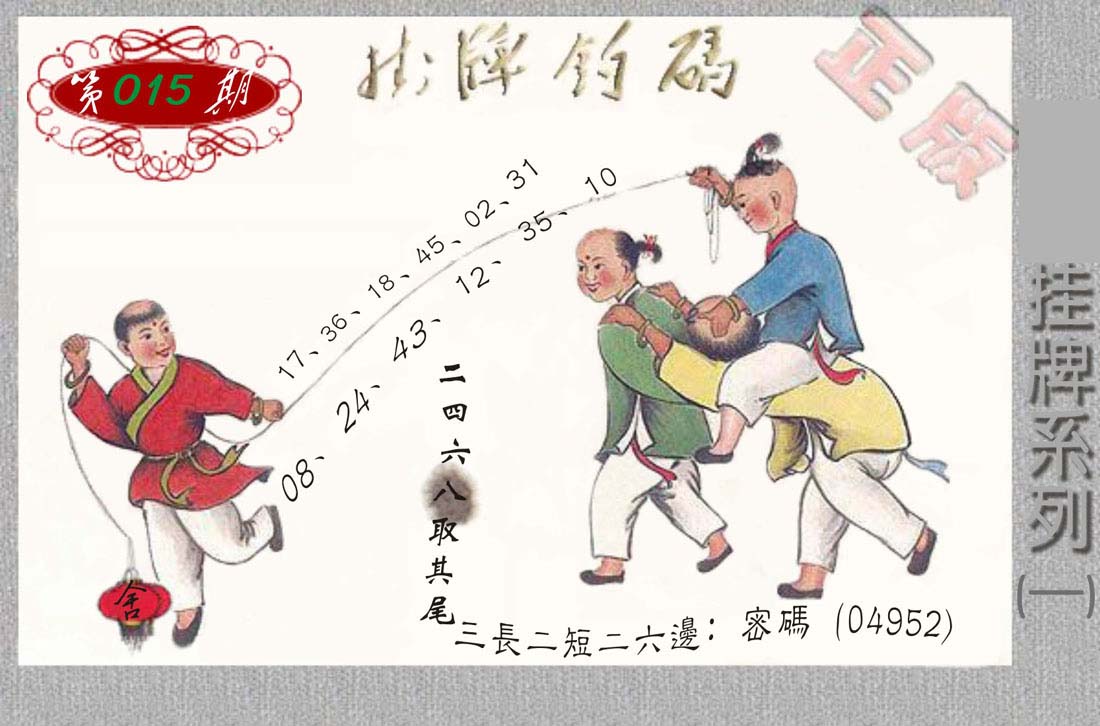 第015期
掛牌釣碼
正版
17、36、18、45、02、31
08、24、43、12、35、10
二四六八取其尾
舍
三長二短二六邊：密碼（04952）
挂牌系列（一）